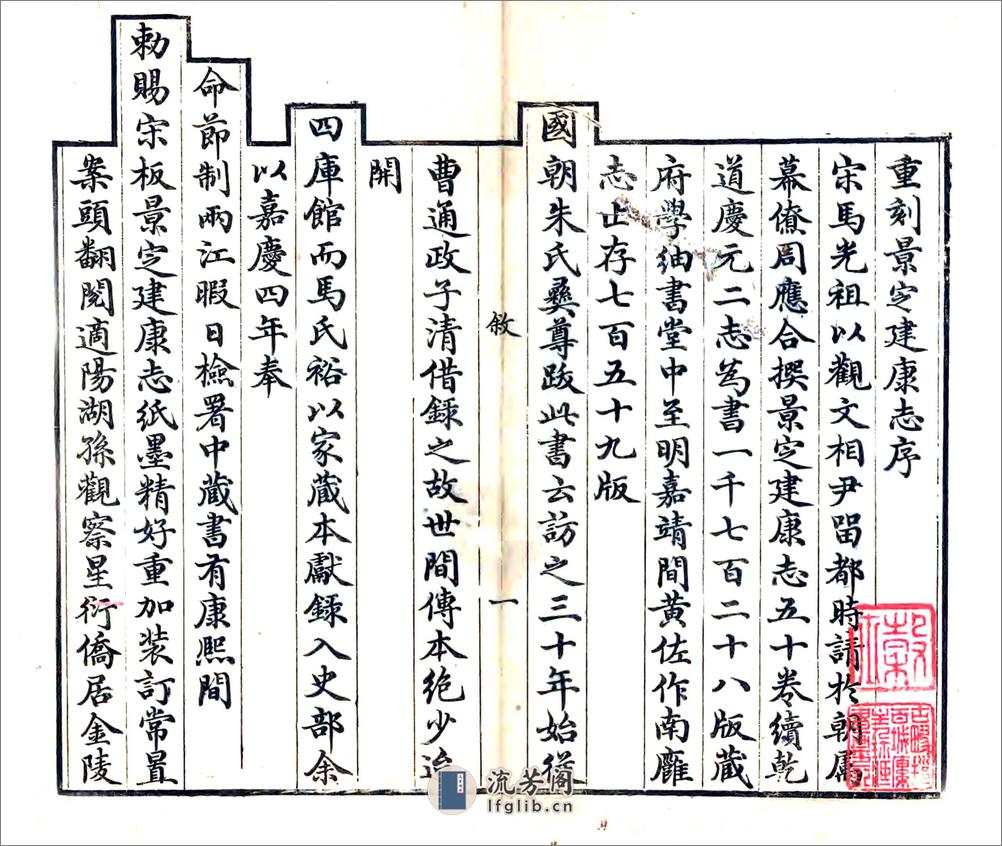 重刻景定建康志序
宋馬光祖以觀文相尹畱都時請於朝屬
幕僚周應合撰景定建康志五十卷續乾
道慶元二志為書一千七百二十八版藏
府學紬書堂中至明嘉靖間黃佐作南廱
志止存七百五十九版
國朝朱氏彝尊跋此書云訪之三十年始從
敘 一
曹通政子清借錄之故世間傳本絶少迨
開
四庫館而馬氏裕以家藏本獻錄入史部余
以嘉慶四年奉
命節制兩江暇日檢署中藏書有康熙間
勅賜宋板景定建康志紙墨精好重加装訂常置
案頭翻閱適陽湖孫觀察星衍僑居金陵
流芳阁
lfglib.cn